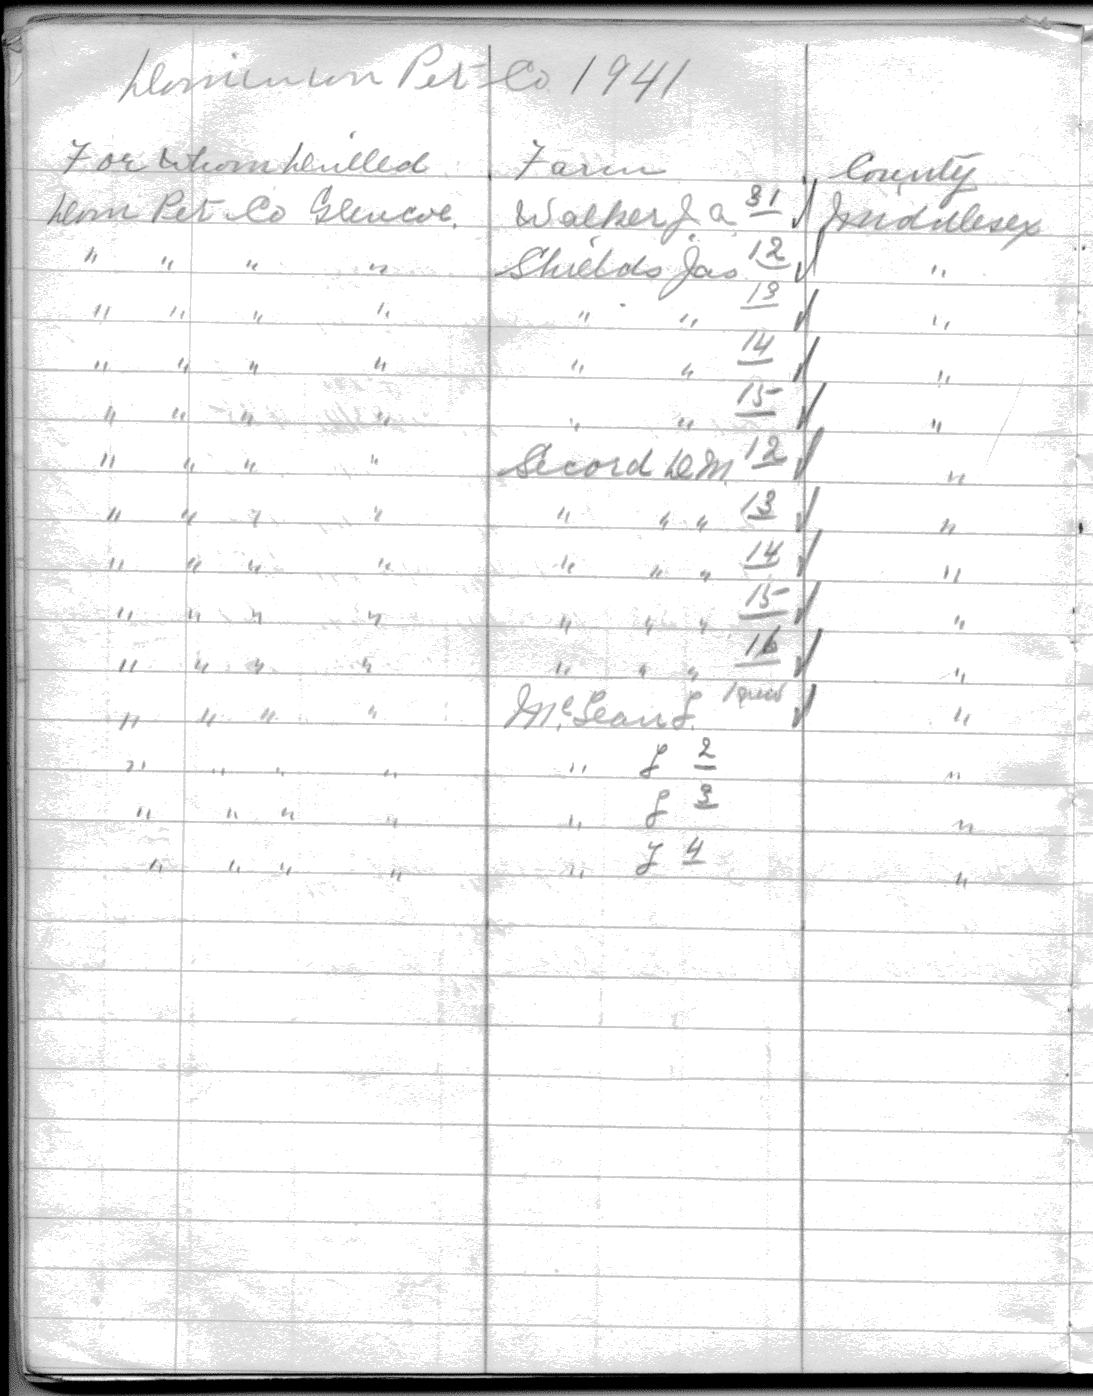 Dominion Pet Co 1941
For Whom Drilled Farm County
Dom Pet Co Glencoe. Walker J. a. 31 ✓ Middlesex
" " " " Shields Jas 12 ✓ "
" " " " " " 13 ✓ "
" " " " " " 14 ✓ "
" " " " " " 15 ✓ "
" " " " Secord D M. 12 ✓ "
" " " " " " " 13 ✓ "
" " " " " " " 14 ✓ "
" " " " " " " 15 ✓ "
" " " " " " " 16 ✓ "
" " " " McLean J. 1 ✓ "
" " " " " J 2 "
" " " " " J 3 "
" " " " " J 4 "